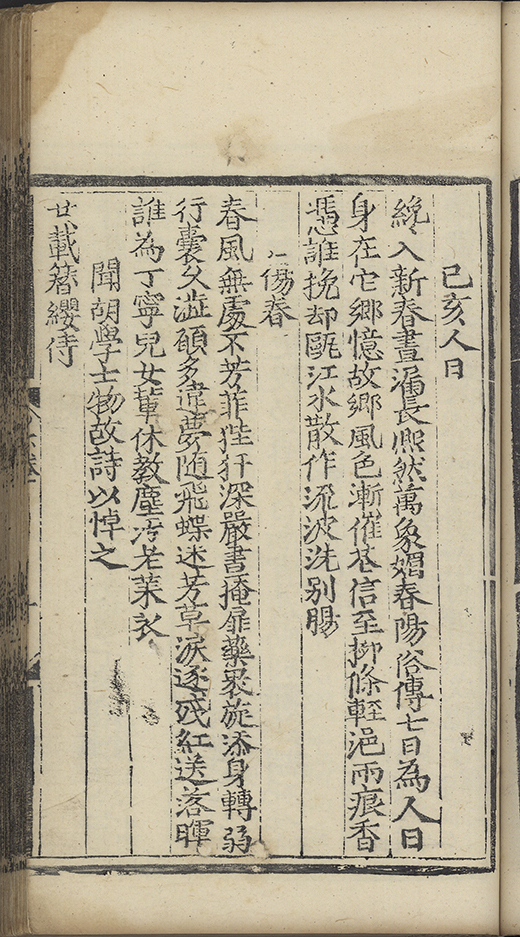 己亥人日
纔入新春晝漏長熈然萬象媚春陽俗傳七日為人日
身在它鄉憶故鄉風色漸催花信至柳條輕浥雨痕香
憑誰挽却甌江水散作流波洗别腸
傷春
春風無處不芳菲狴犴深嚴晝掩扉藥裹旋添身轉弱
行囊久澁願多違夢随飛蝶迷芳草淚逐残紅送落暉
誰為丁寧兒女軰休教塵涴老萊衣
聞胡學士物故詩以悼之
廿載簪纓侍